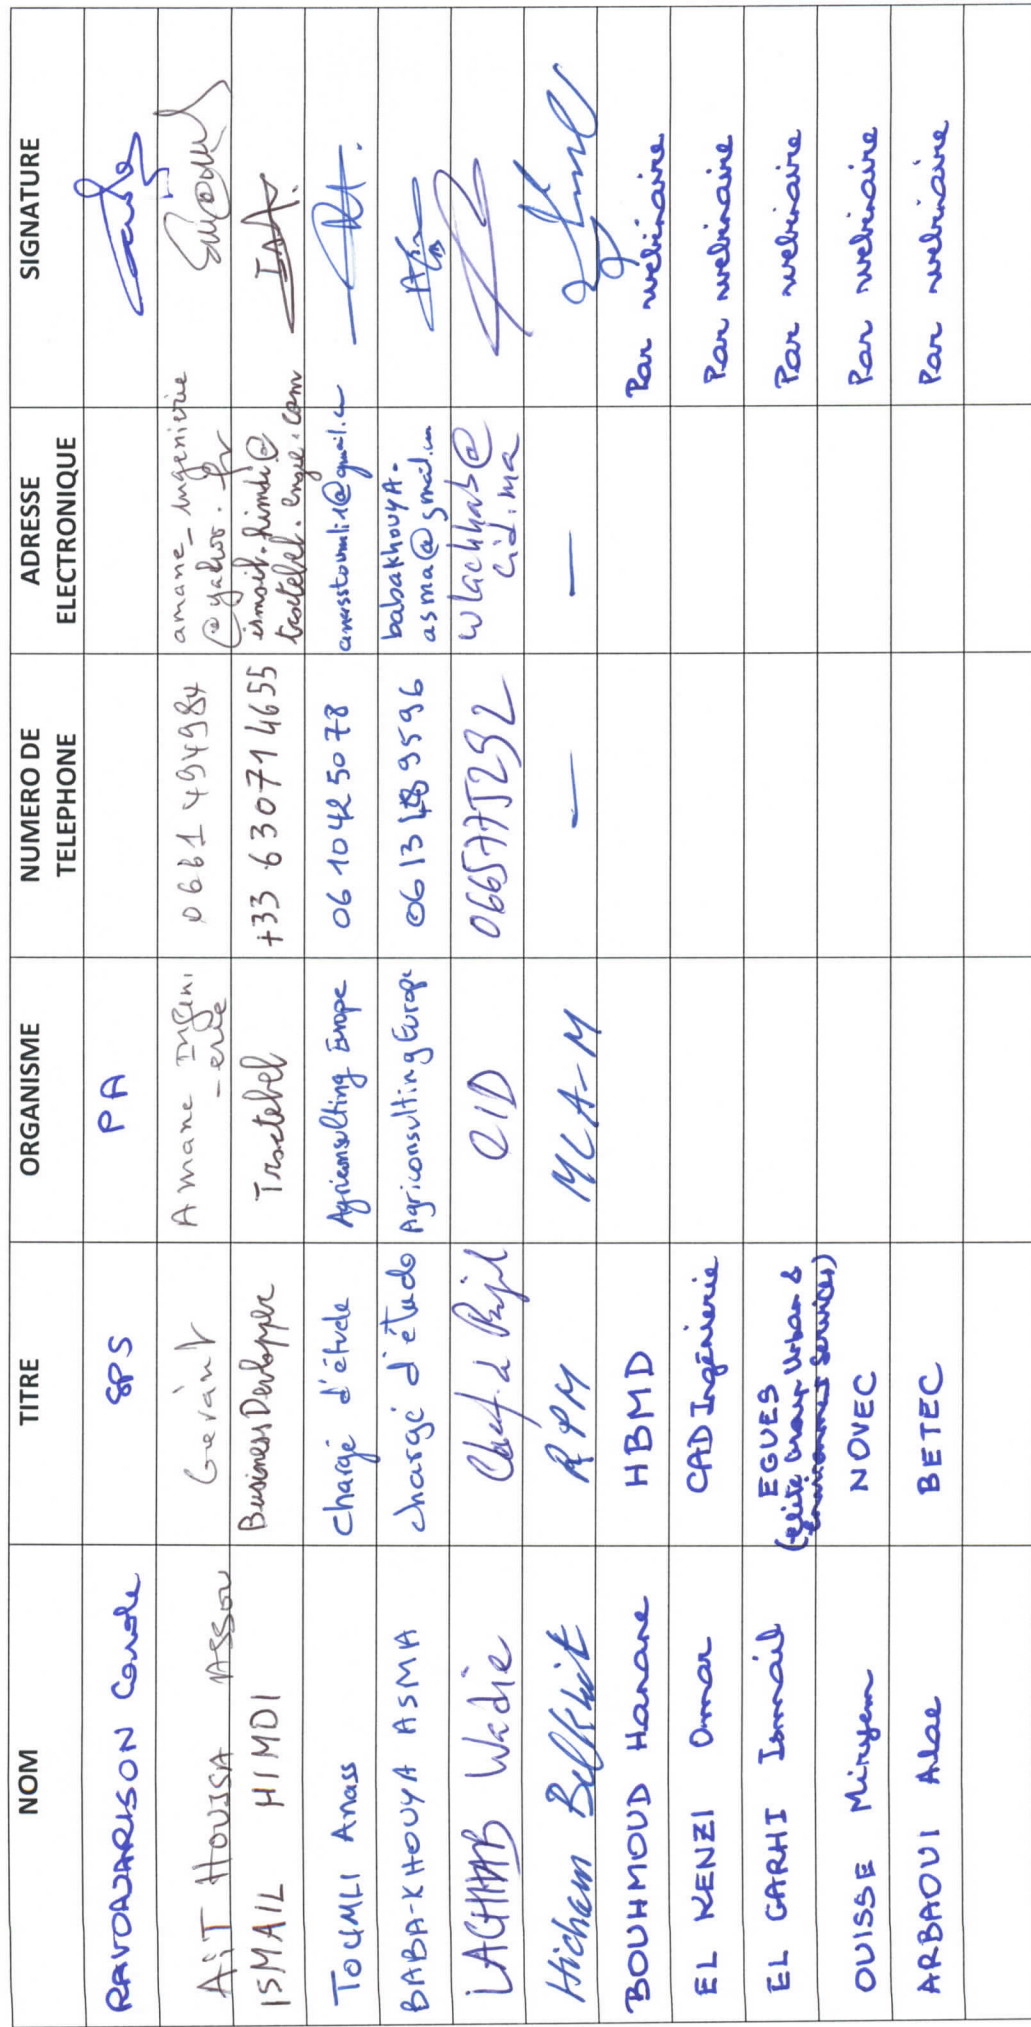 NOM TITRE ORGANISME NUMERO DE TELEPHONE ADRESSE ELECTRONIQUE SIGNATURE
RAVOAJARISON Carole SPS PA
AiT HOUSSA ASSOU Gérant Amane Ingéni-erie 0661 494984 amane_ingenierie@yahoo.fr
ISMAIL HIMDI Business Developper Tractebel +33 630714655 ismail.himdi@tractebel.engie.com
TOUMLI Anass Chargé d'étude Agriconsulting Europe 06 10425078 anasstoumli1@gmail.c
BABA-KHOUYA ASMA chargé d'étude Agriconsulting Europe babakhouya.asma@gmail.com
LACHHAB Wadie Chef de Projet CID 0665775292 wlachhab@cid.ma
Hicham Belkhit RPM MCA-M — —
BOUHMOUD Hanane HBMD Par webinaire
EL KENZI Omar CAD Ingénierie Par webinaire
EL GARHI Ismail EGUES (Elite Group Urban & Environment Services) Par webinaire
OUISSE Miryem NOVEC Par webinaire
ARBAOUI Alae BETEC Par webinaire